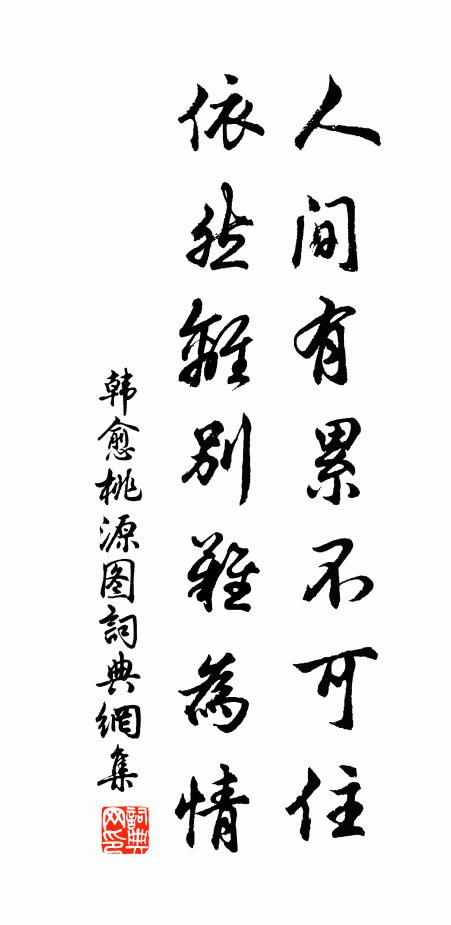 人间有累不可住
依然離別難為情
韩愈桃源图詞典網集
詞典网印